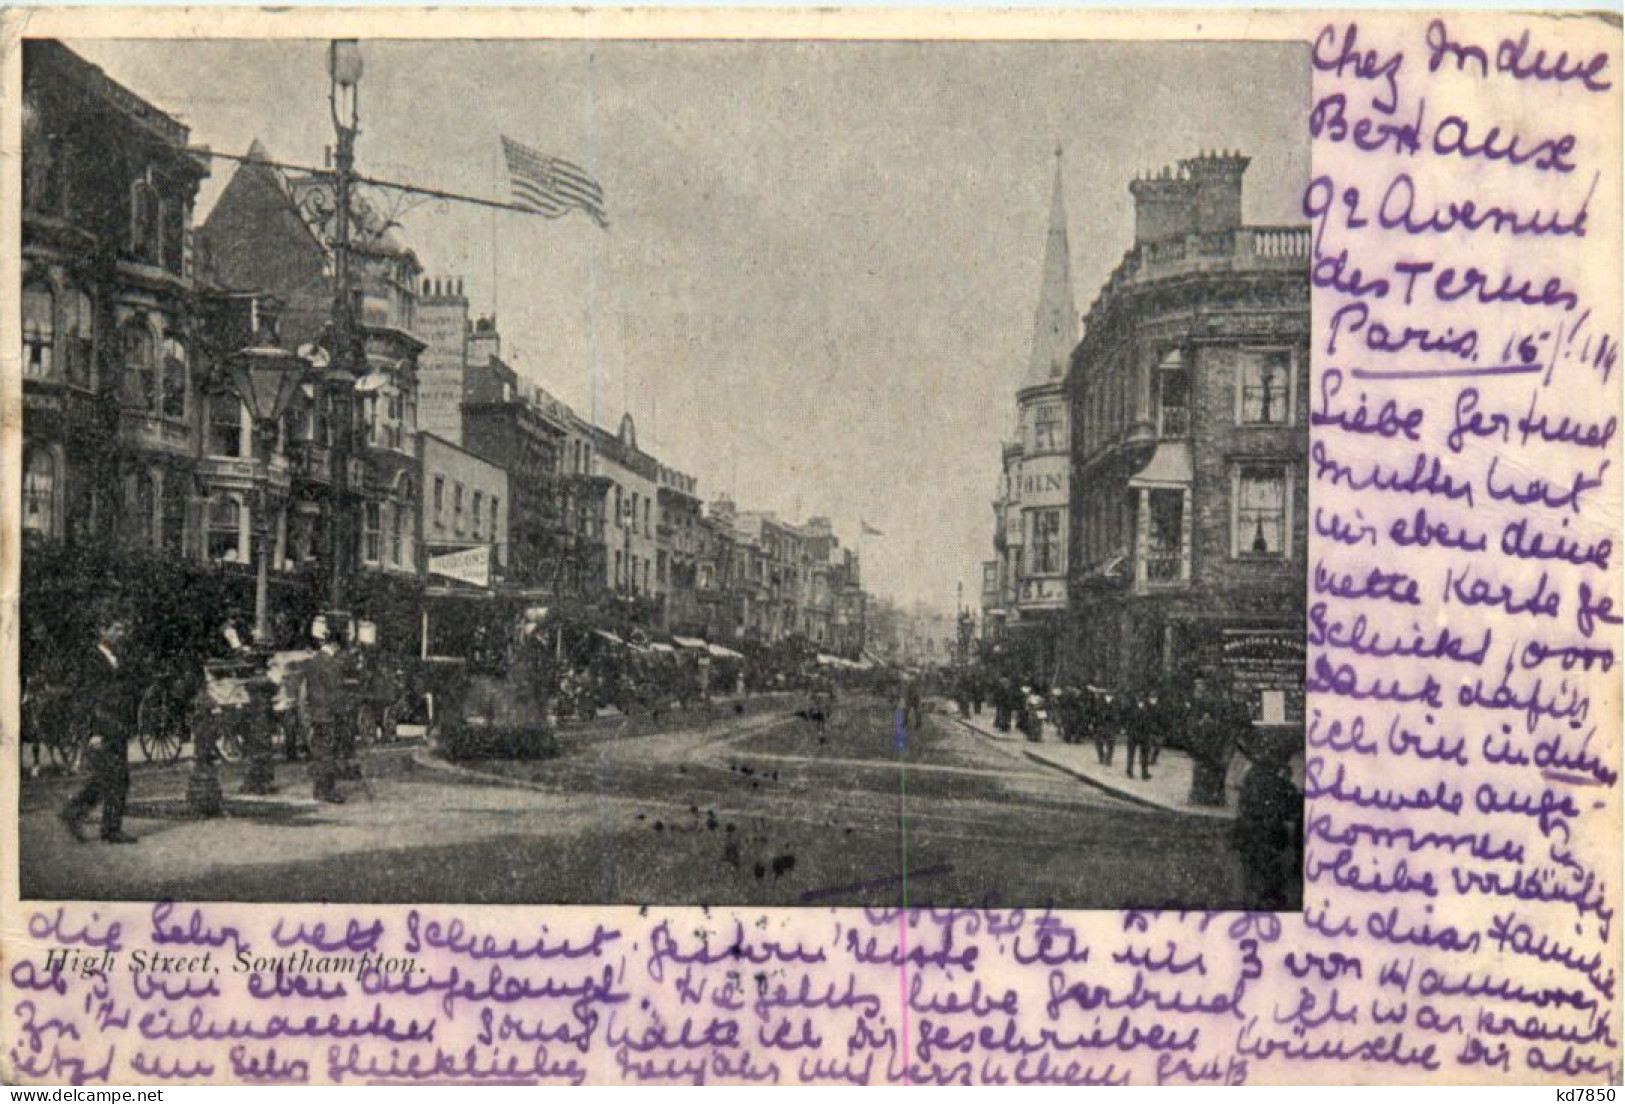 Chez Mdme
Bertaux
92 Avenue
des Ternes,
Paris. 15/1 14
Liebe Gertrud
Mutter hat
mir eben deine
nette Karte ge
schickt, 1000
Dank dafür,
ich bin in dieser
Stunde ange-
kommen u.
bleibe vorläufig
in dieser Familie
die sehr nett scheint, gestern reiste ich um 3 von Hannover
ab u. bin eben angelangt. Wie gehts, liebe Gertrud, ich war krank
zu Weihnachten sonst hätte ich Dir geschrieben wünsche Dir aber
jetzt ein sehr glückliches Neujahr mit herzlichem Gruß
High Street, Southampton.
HUDSON'S
kd7850